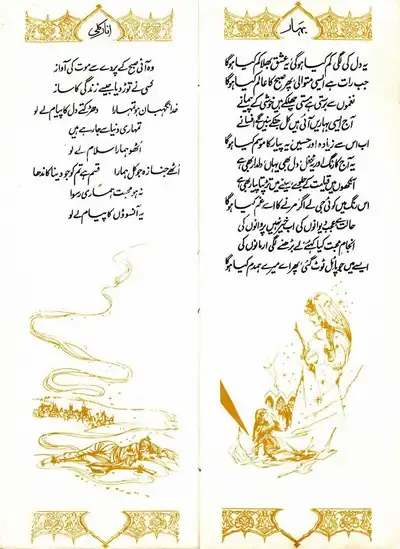 بہار
یہ دل کی لگی کم کیا ہوگی یہ عشق بھلا کم کیا ہوگا
جب رات ہے ایسی متوالی پھر صبح کا عالم کیا ہوگا
نغموں سے برستی ہے مستی چھلکے ہیں خوشی کے پیمانے
آج ایسی بہاریں آئی ہیں کل جنکے بنیں گے افسانے
اب اس سے زیادہ اور حسیں یہ پیار کا موسم کیا ہوگا
یہ آج کا رنگ اور یہ محفل دل بھی یہاں دلدار بھی ہے
آنکھوں میں قیامت کے جلوے سینے میں تڑپتا پیار بھی ہے
اس رنگ میں کوئی جی لے اگر مرنے کا اسے غم کیا ہوگا
حالت ہے عجب دیوانوں کی اب خیر نہیں پروانوں کی
انجام محبت کیا کہئے لے بڑھنے لگی ارمانوں کی
ایسے میں جو پائل ٹوٹ گئی پھر اے میرے ہمدم کیا ہوگا
انارکلی
وہ آئی صبح کے پردے سے موت کی آواز
کسی نے توڑ دیا جیسے زندگی کا ساز
خدا نگہبان ہو تمہارا دھڑکتے دل کا پیام لے لو
تمہاری دنیا سے جا رہے ہیں
اٹھو ہمارا سلام لے لو
اٹھے جنازہ جو کل ہمارا قسم ہے تم کو جو دینا کاندھا
نہ ہو محبت ہماری رسوا
یہ آنسوؤں کا پیام لے لو